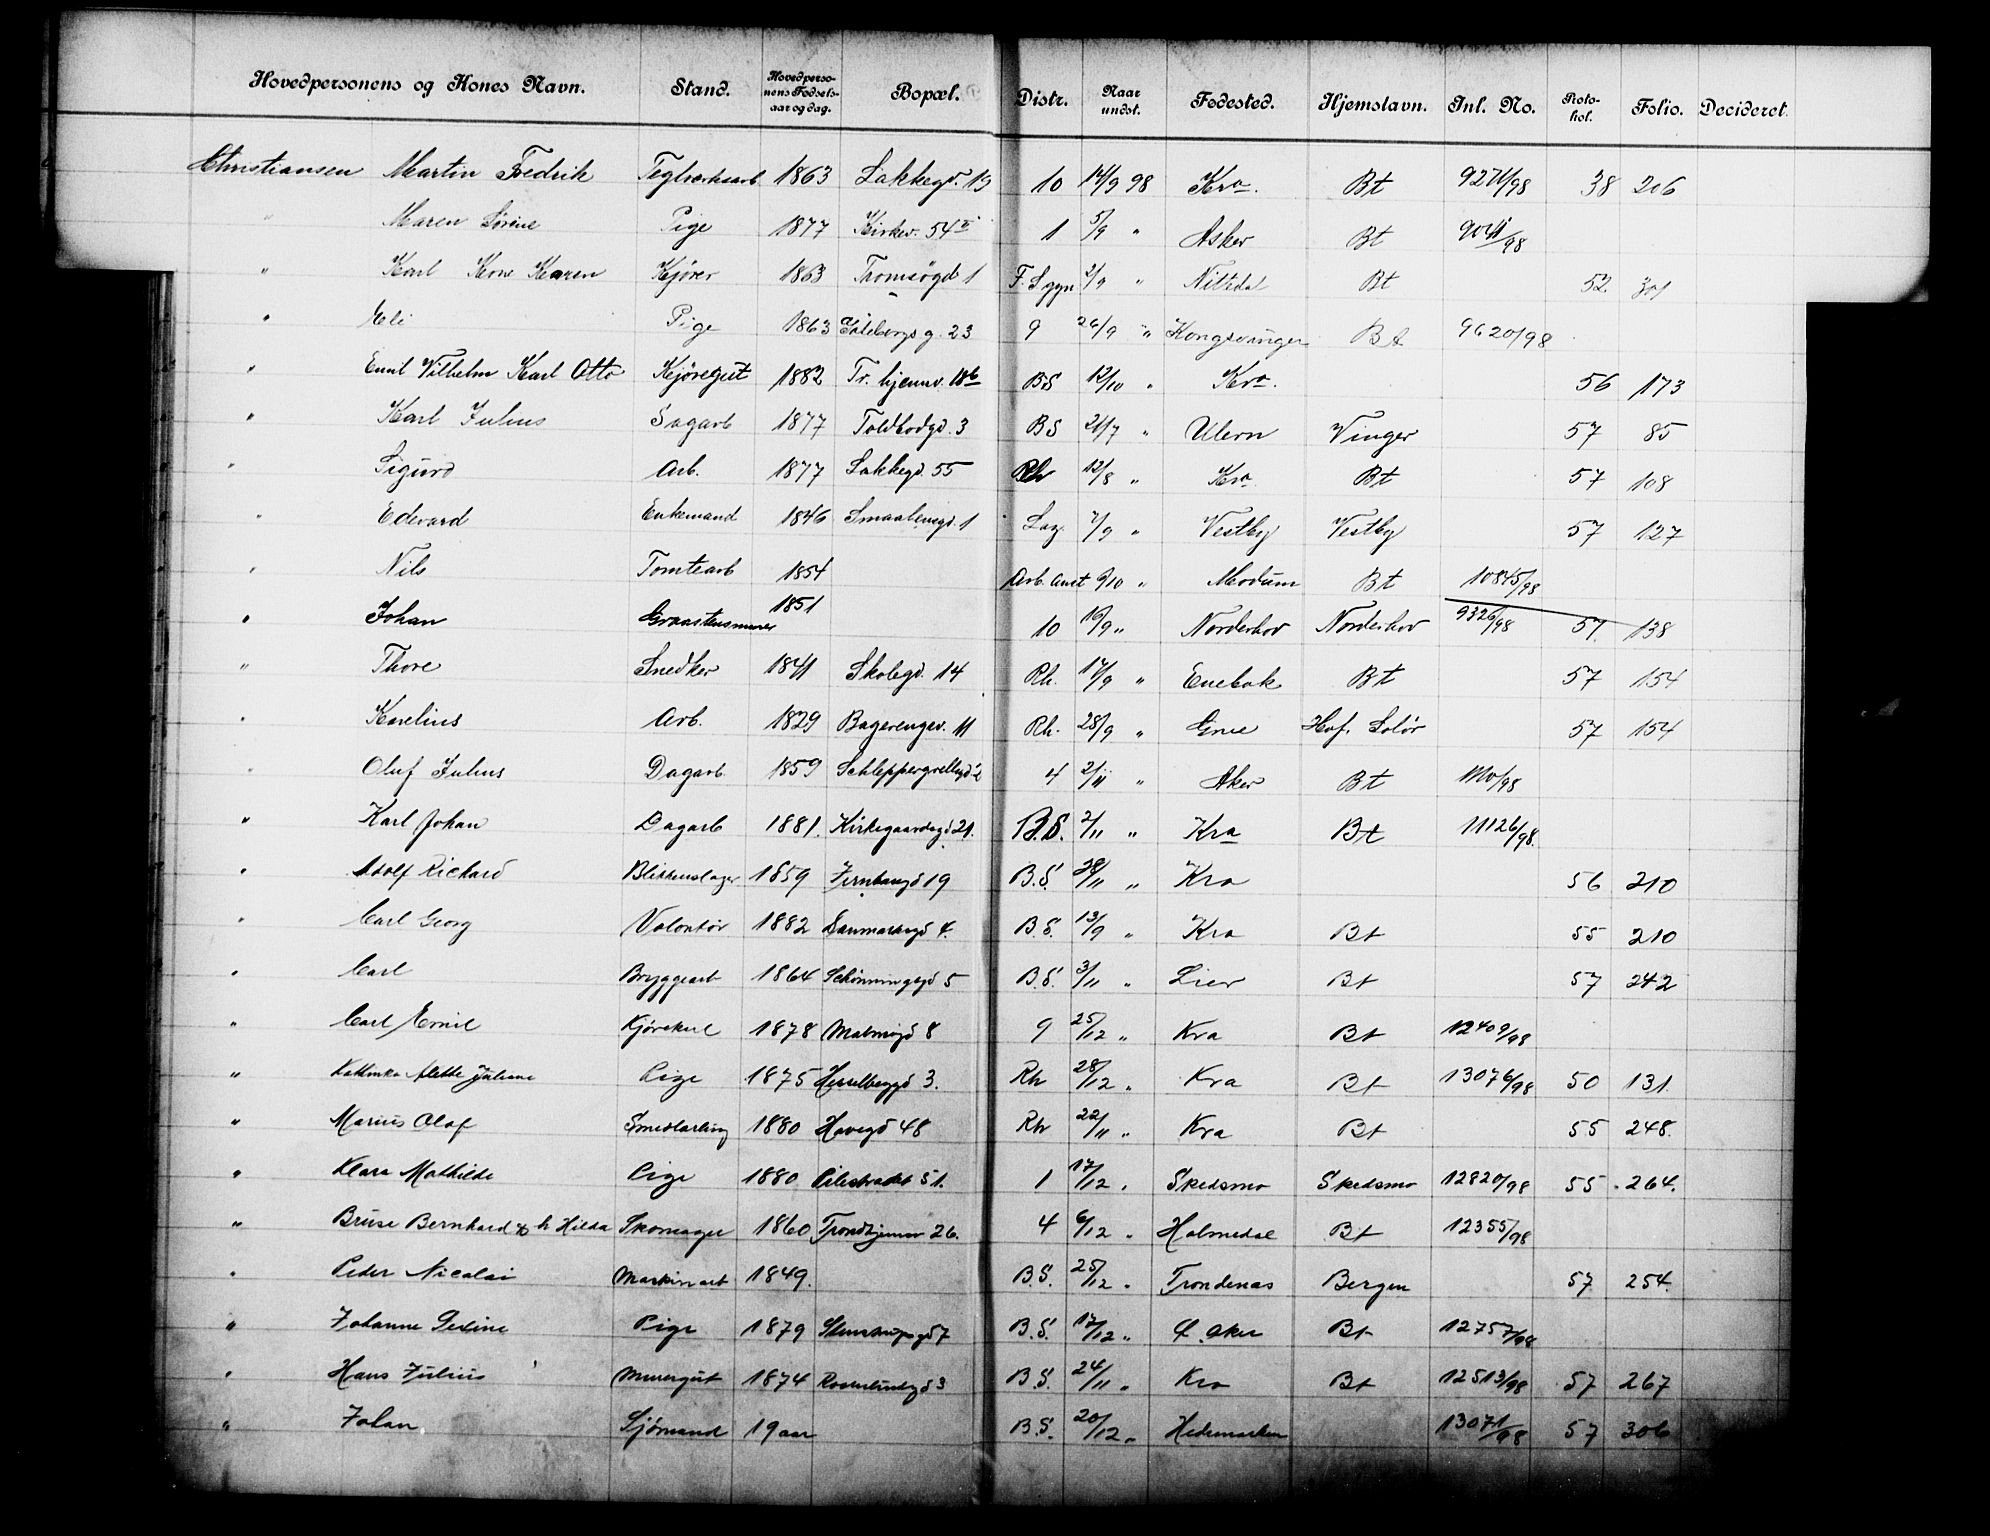 Hovedpersonens og Kones Navn. Stand. Hovedpersonens Fødselsaar og dag. Bopæl. Distr. Naar undst. Fødested. Hjemstavn. Inl. No. Protokol. Folio. Decideret.
Christiansen Martin Fredrik Teglverksarb 1863 Lakkegd. 19 10 14/9 98 Kra. Bt 9271/98 38 206
" Maren Sørine Pige 1877 Kirkev. 54 II 1 5/9 " Asker Bt 9041/98
" Karl Kone Karen Kjører 1863 Tromsøgd 1 F. S gyn 2/9 " Nittedal Bt 52. 301
" Eli Pige 1863 Gøteborgs g. 23 9 26/9 " Kongsvinger Bt 9620/98
" Emil Vilhelm Karl Otto Kjøregut 1882 Tr. hjemsv. 18b BS 12/10 " Kra. 56 173
" Karl Julius Sagarb 1877 Toldbodgd. 3 BS 21/7 " Ulern Vinger 57 85
" Sigurd Arb. 1877 Lakkegd. 55 Rh 12/8 " Kra. Bt 57 108
" Edevard Enkemand 1846 Smaalensgd. 1 Laz. 7/9 " Vestby Vestby 57 127
" Nils Tomtearb 1854 Arb. Anst 9/10 " Modum Bt 10845/98
" Johan Graastensmurer 1851 10 16/9 " Norderhov Norderhov 9326/98 57. 138
" Thore Snedker 1841 Skolegd. 14 Rh. 17/9 " Enebak Bt 57 154
" Karelius Arb. 1829 Bagerengsv. 11 Rh. 28/9 " Grue Hof, Solør 57 154
" Oluf Julius Dagarb. 1859 Schleppegrellsgd 2 4 2/11 " Aker Bt 1110/98
" Karl Johan Dagarb 1881. Kirkegaardsgd 21. B.S. 2/11 " Kra Bt 11126/98.
" Adolf Rickard Blikkenslager 1859 Jernbangd 19 B.S. 28/11 " Kra 56 210
" Carl Georg Volontør 1882 Danmarksgd 4. B.S. 13/9 " Kra Bt 55 210
" Carl Bryggearb 1864 Schønningsgd 5 B.S. 3/11 " Lier Bt 57 242
" Carl Emil Kjørekarl 1878 Malmøgd 8 9 25/12 " Kra Bt 12409/98
" Kathinka Alette Juliane Pige 1875 Hesselbeggd 3. Rh 28/12 " Kra Bt 13076/98 50 131.
" Marius Olaf Smedlærling 1880 Havegd 48 Rh 22/11 " Kra Bt 55 248.
" Klara Mathilde Pige 1880 Pilestrædet 51. 1 17/12 " Skedsmo Skedsmo 12820/98 55 264.
" Bruse Bernhard & h Hilda Skomager 1860 Trondhjemsv 26. 4 6/12 " Holmedal Bt 12355/98
" Peder Nicolai Maskinarb 1849. B.S. 25/12 " Trondenas Bergen 57 254.
" Johanne Sexine Pige 1879 Stenstrupsgd 7 B.S. 17/12 " Ø. Aker Bt 12757/98
" Hans Julius Murergut 1874 Rosenlundgd 3 B.S. 24/11 " Kra Bt 12513/98 57 267
" Johan Sjømand 19 aar B.S. 20/12 " Hedemarken 13071/98 57 306